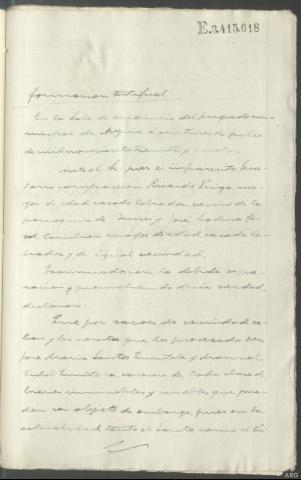 E.3415.618
formacion testifical.
En la Sala de audiencia del Juzgado mu-
nicipal de a veintitres de julio
de mil novecientos treinta y
Ante el Sr. Juez e infrascrito Secre-
tario comparecen Ricardo ma-
yor de edad casado labrador, vecino de la
parroquia de y José
tambien mayor de edad, casado la-
brador, y de igual vecindad.
Examinados con la debida sepa-
racion y prometiendo decir verdad,
declaran:
Que por razon de vecindad sa-
ben y les consta que los procesados don
José Maria Santos y Manuel
Vidal carecen de toda clase de
bienes inmuebles y muebles que pue-
dan ser objeto de embargo, pues en la
actualidad tanto el Santos como el Vi-
ARG